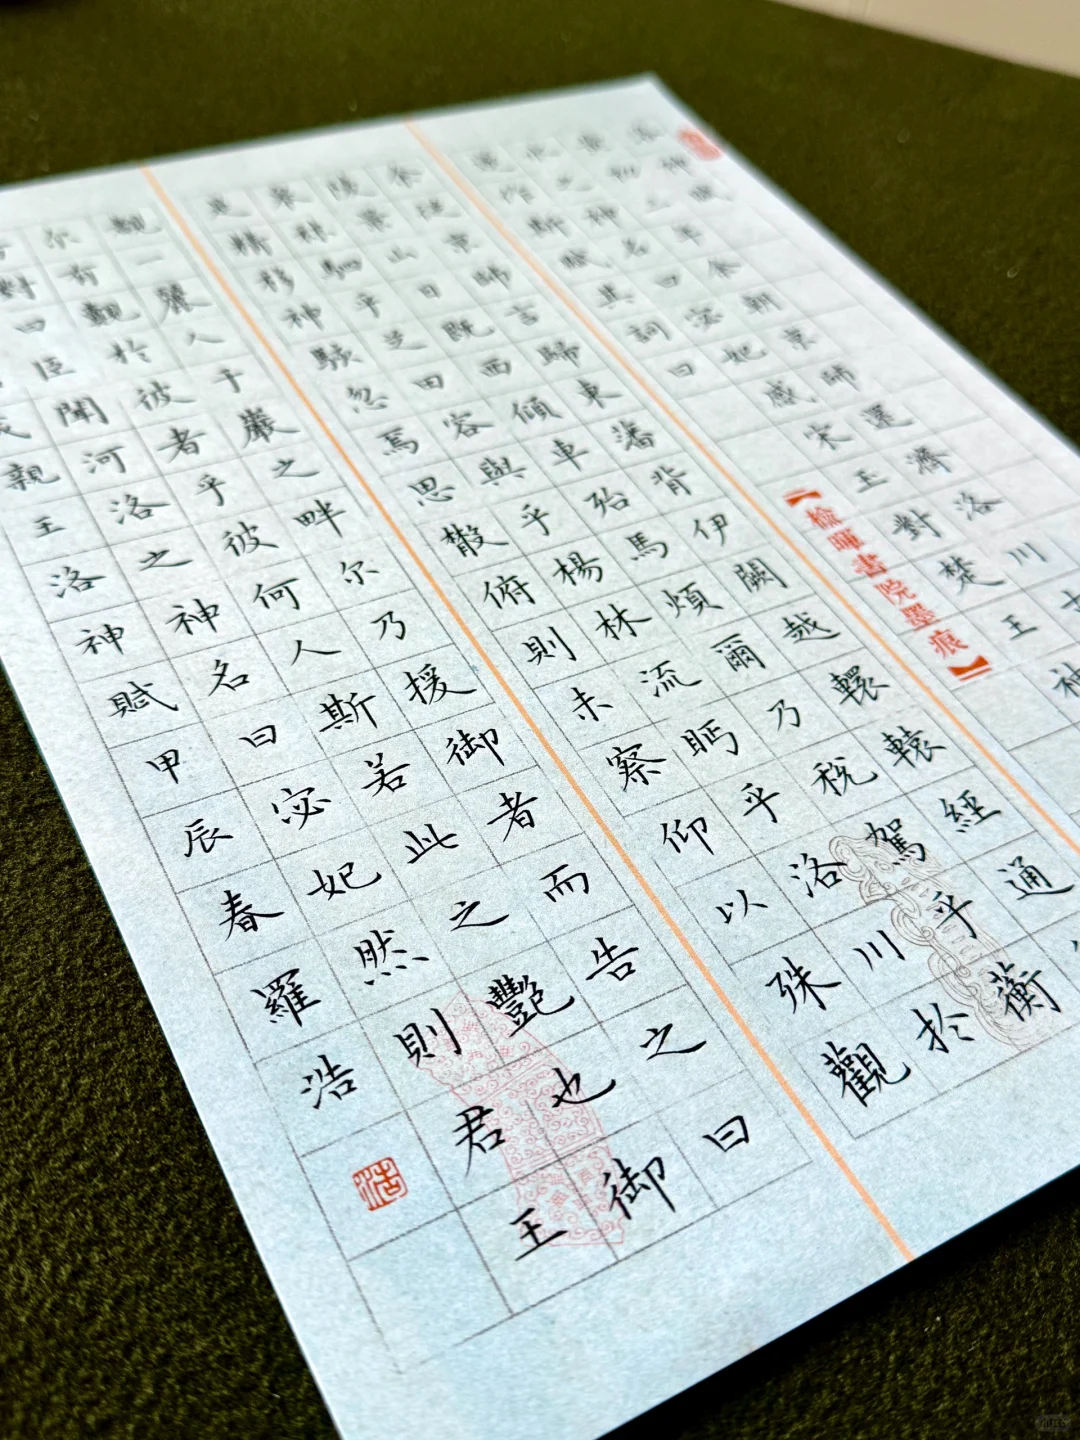 洛神賦
黃初三年余朝京師還濟洛川古
之神名曰宓妃感宋玉對楚王神
遂作斯賦其詞曰
【檢暉書院墨痕】
余從京師言歸東藩背伊闕越轘轅經通
陵景山日既西傾車殆馬煩爾乃稅駕乎蘅
秣駟乎芝田容與乎楊林流眄乎洛川於
是精移神駭忽焉思散俯則未察仰以殊觀
觀一麗人于巖之畔尔乃援御者而告之曰
尔有觀於彼者乎彼何人斯若此之豔也御
對曰臣聞河洛之神名曰宓妃然則君王
親王洛神賦甲辰春羅浩
浩